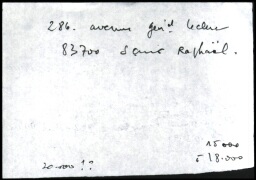 286. avenue gén^al Leclerc
83700 Saint Raphaël.
15000
18.000
20.000 ??